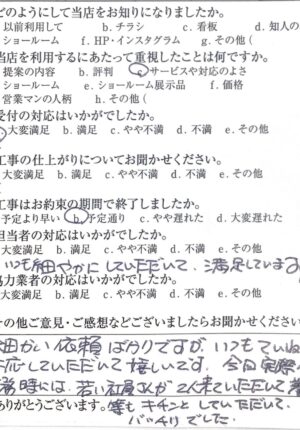 どのようにして当店をお知りになりましたか。
以前利用して b. チラシ c. 看板 d. 知人の
ショールーム f. HP・インスタグラム g. その他(
当店を利用するにあたって重視したことは何ですか。
提案の内容 b. 評判 c. サービスや対応のよさ
ショールーム e. ショールーム展示品 f. 価格
営業マンの人柄 h. その他(
受付の対応はいかがでしたか。
大変満足 b. 満足 c. やや不満 d. 不満 e. その他
工事の仕上がりについてお聞かせください。
大変満足 b. 満足 c. やや不満 d. 不満 e. その他
工事はお約束の期間で終了しましたか。
予定より早い b. 予定通り c. やや遅れた d. 大変遅れた
担当者の対応はいかがでしたか。
大変満足 b. 満足 c. やや不満 d. 不満 e. その他
いつも細やかにしていただいて、満足しています
協力業者の対応はいかがでしたか。
大変満足 b. 満足 c. やや不満 d. 不満 e. その他
その他ご意見・ご感想などございましたらお聞かせください
細かい依頼ばかりですが、いつもていね
応していただいて嬉しいです。今回実際
時には、若い社員さんが2人来ていただいて、
ありがとうございます。等もキチンとしていただいて、
バッチリでした。